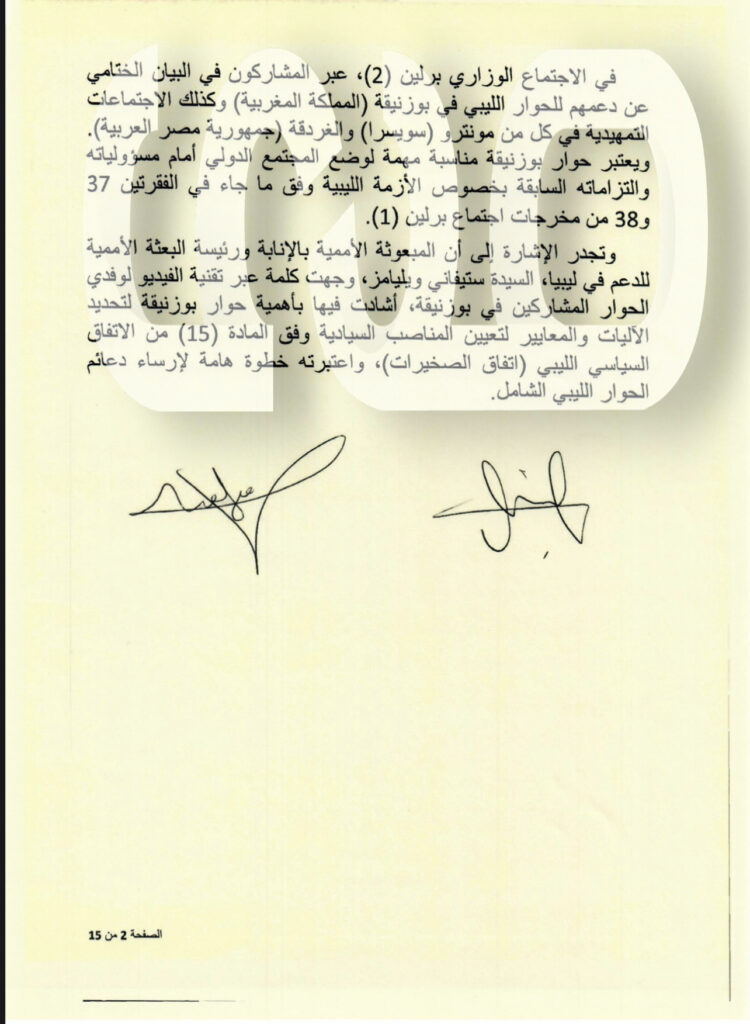 في الاجتماع الوزاري برلين (2)، عبر المشاركون في البيان الختامي
عن دعمهم للحوار الليبي في بوزنيقة (المملكة المغربية) وكذلك الاجتماعات
التمهيدية في كل من مونترو (سويسرا) والغردقة (جمهورية مصر العربية).
ويعتبر حوار بوزنيقة مناسبة مهمة لوضع المجتمع الدولي أمام مسؤولياته
والتزاماته السابقة بخصوص الأزمة الليبية وفق ما جاء في الفقرتين 37
و38 من مخرجات اجتماع برلين (1).
وتجدر الإشارة إلى أن المبعوثة الأممية بالإنابة ورئيسة البعثة الأممية
للدعم في ليبيا، السيدة ستيفاني ويليامز، وجهت كلمة عبر تقنية الفيديو لوفدي
الحوار المشاركين في بوزنيقة، أشادت فيها بأهمية حوار بوزنيقة لتحديد
الآليات والمعايير لتعيين المناصب السيادية وفق المادة (15) من الاتفاق
السياسي الليبي (اتفاق الصخيرات)، واعتبرته خطوة هامة لإرساء دعائم
الحوار الليبي الشامل.
الصفحة 2 من 15